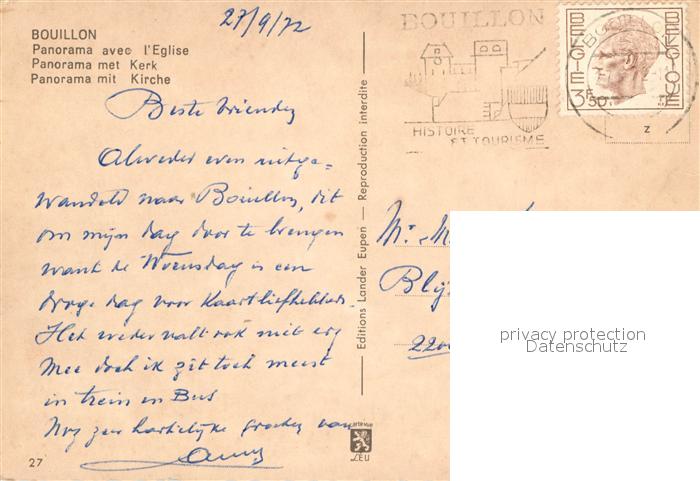 27/9/72
BOUILLON
Panorama avec l'Eglise
Panorama met Kerk
Panorama mit Kirche
BOUILLON
HISTOIRE
ET TOURISME
BELGIE BELGIQUE
3F50
z
Beste Vrienden
Alweder even uitge-
wandeld naar Bouillon, dit
om mijn dag door te brengen
want de Woensdag is een
droge dag voor Kaartliefhebbers.
Het weder valt ook niet erg
mee doch ik zit toch meest
in trein en Bus
Nog zeer hartelijke groeten van
Mr. M
Blij
2200
Editions Lander Eupen — Reproduction interdite
privacy protection
Datenschutz
LEU
27